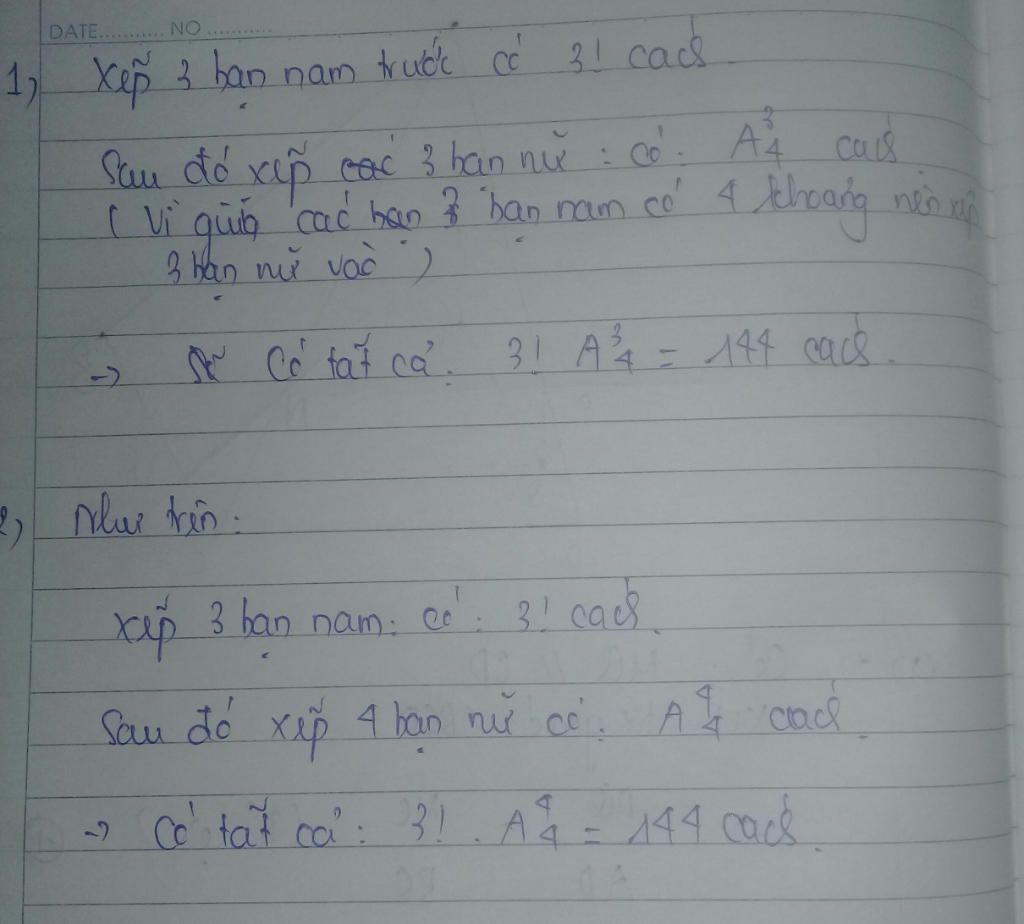 DATE........... NO ...........
1) Xếp 3 bạn nam trước có 3! cách.
Sau đó xếp các 3 bạn nữ : có : A³₄ cách
( Vì giữa các bạn 3 bạn nam có 4 khoảng nên xếp
3 bạn nữ vào )
→ Có tất cả : 3! A³₄ = 144 cách.
2) Như trên :
Xếp 3 bạn nam : có : 3! cách.
Sau đó xếp 4 bạn nữ có : A⁴₄ cách.
→ Có tất cả : 3! . A⁴₄ = 144 cách.